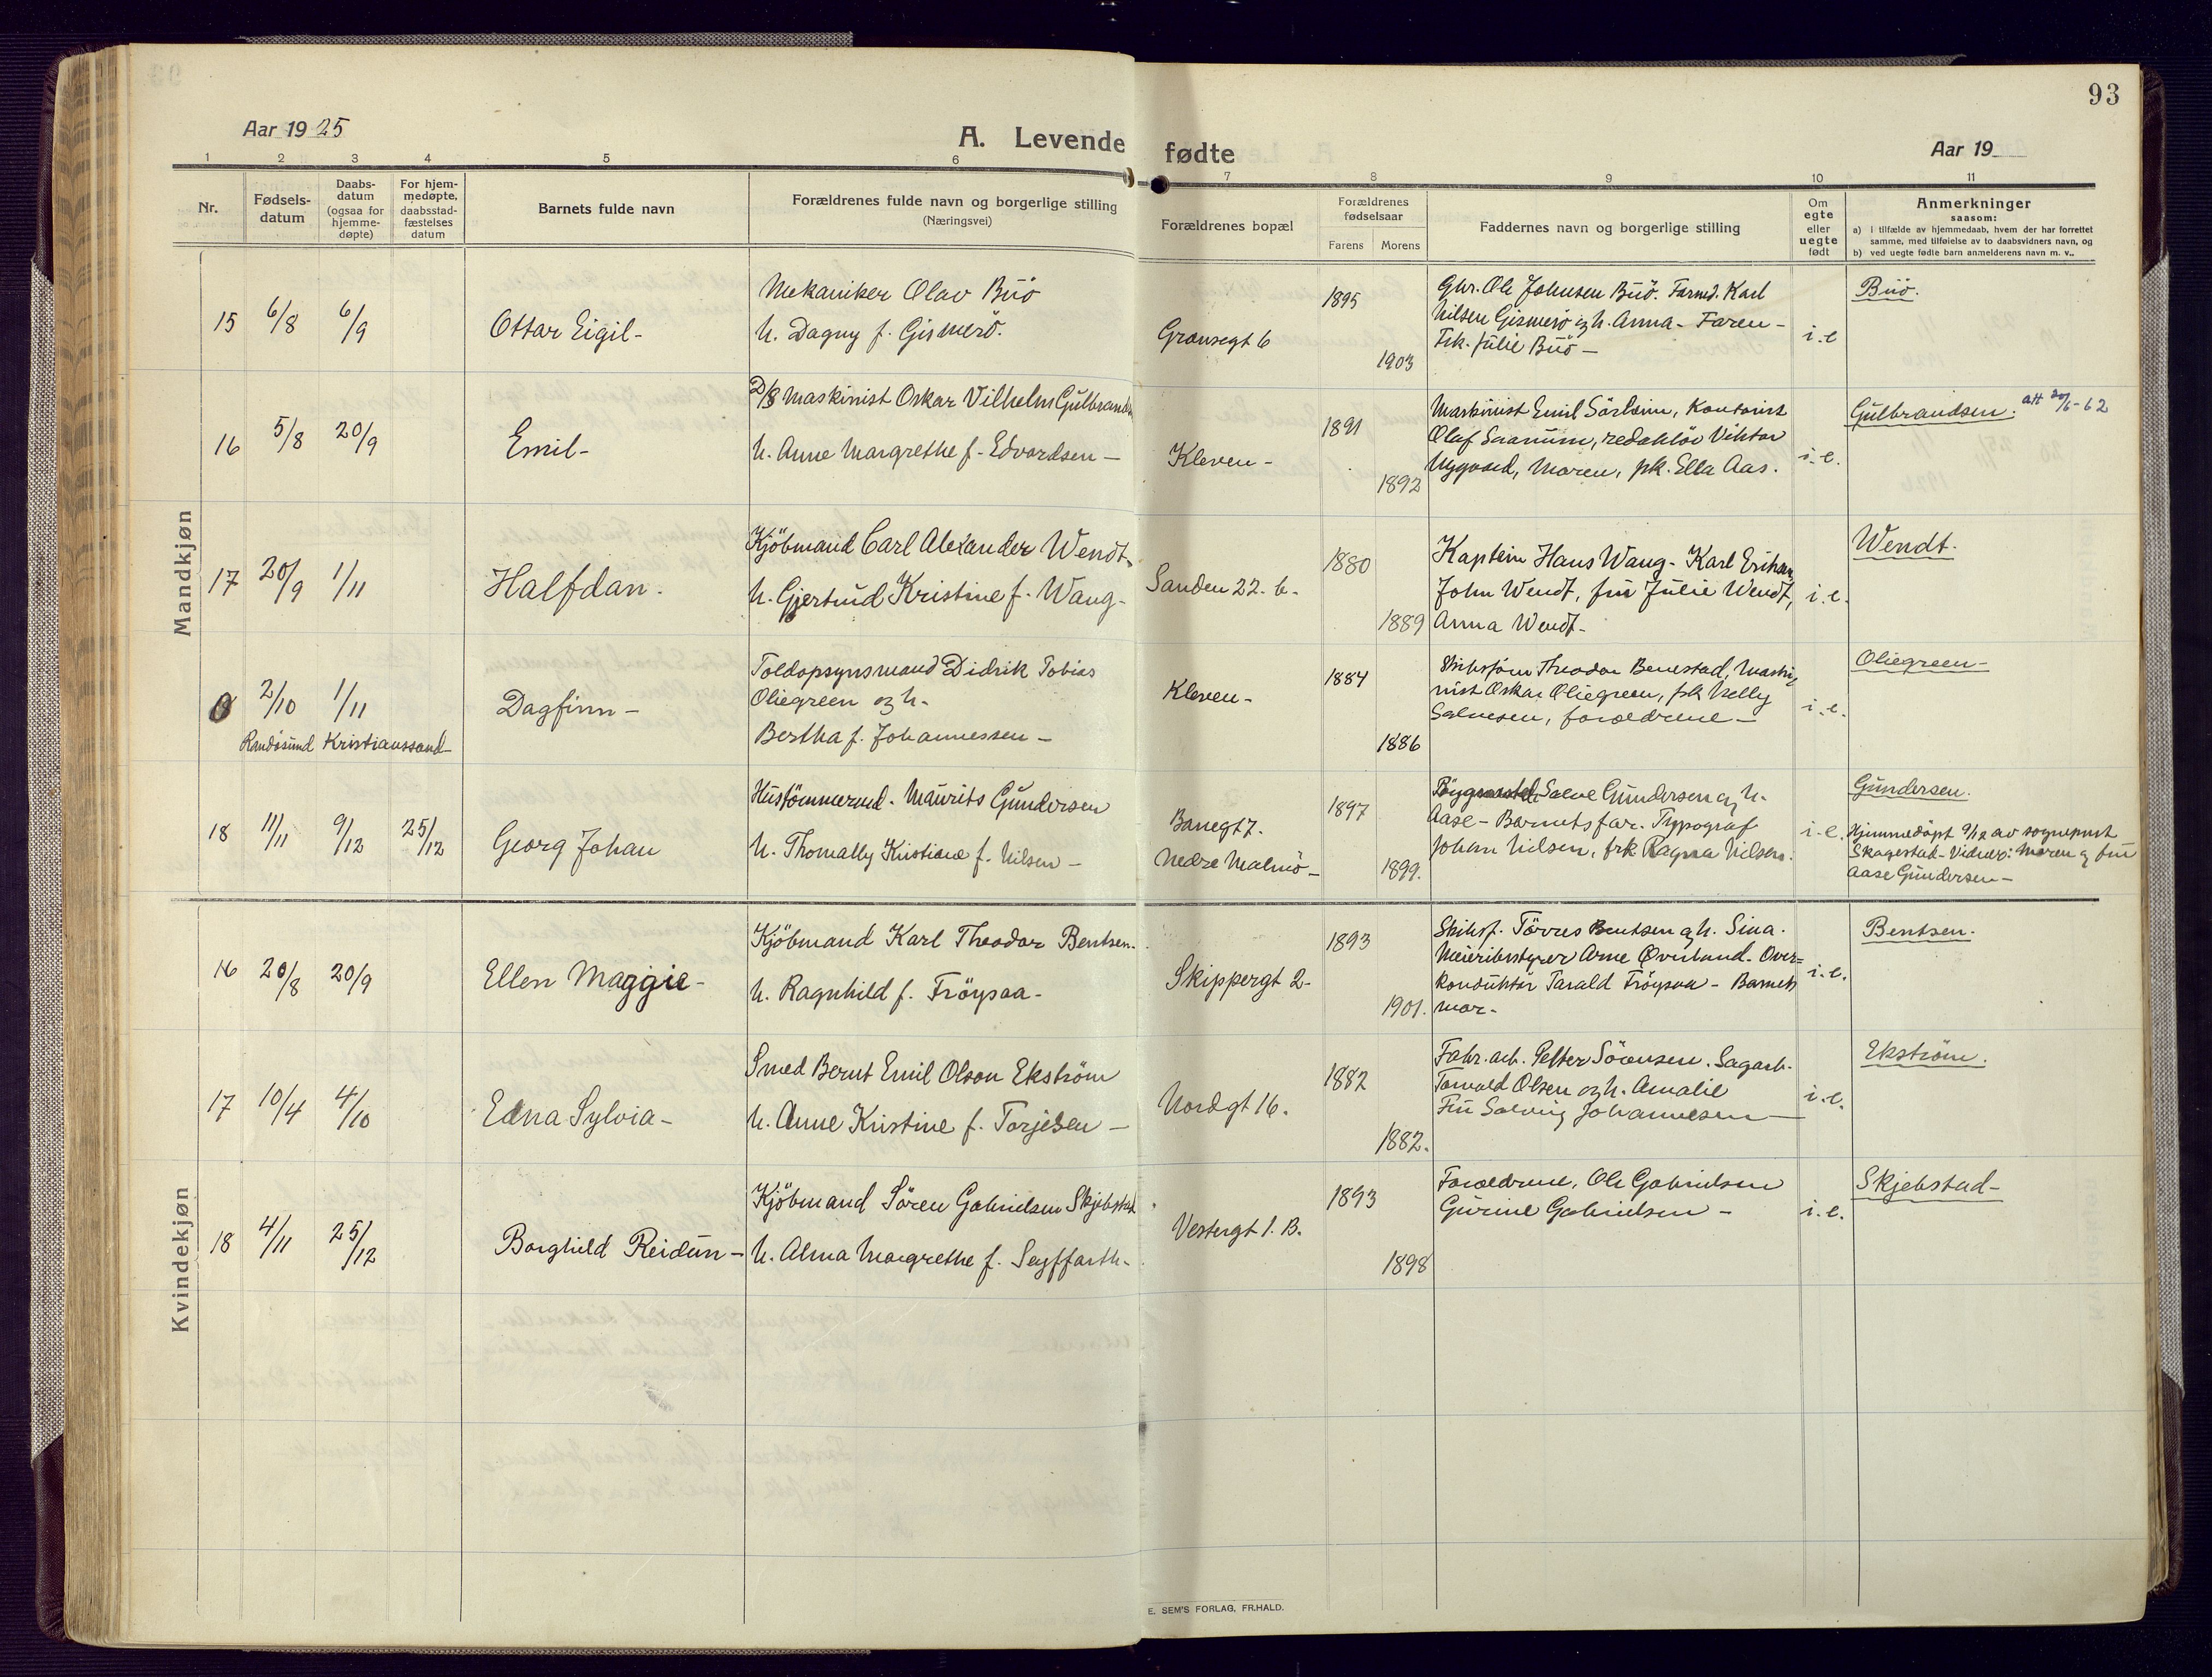 93
Aar 1925
A. Levende fødte
Aar 19
1 2 3 4 5 6 7 8 9 10 11
Nr.
Fødsels-
datum
Daabs-
datum
(ogsaa for
hjemme-
døpte)
For hjem-
medøpte,
daabsstad-
fæstelses
datum
Barnets fulde navn
Forældrenes fulde navn og borgerlige stilling
(Næringsvei)
Forældrenes bopæl
Forældrenes
fødselsaar
Farens Morens
Faddernes navn og borgerlige stilling
Om
egte
eller
uegte
født
Anmerkninger
saasom:
a) i tilfælde av hjemmedaab, hvem der har forrettet
samme, med tilføielse av to daabsvidners navn, og
b) ved uegte fødte barn anmelderens navn m. v..
Mandkjøn
15 6/8 6/9
Ottar Eigil-
Mekaniker Olav Büö
h. Dagny f. Gismerö.
Gronsegt 6
1895
1903
Gbr. Ole Johnsen Büö. Formd. Karl
Nilsen Gismerö og h. Anna - Faren -
Frk. Julie Büö -
i.e
Büö.
16 5/8 20/9
Emil-
D/S Maskinist Oskar Vilhelm Gülbrandsen
h. Anne Margrethe f. Edvardsen -
Kleven -
1891
1892
Maskinist Emil Sörheim, Kontorist
Olaf Saanum, redaktör Viktor
Nygaard, Moren, frk. Ella Aas.
i.e.
Gülbrandsen. att 20/6-62
17 20/9 1/11
Halfdan.
Kjöbmand Carl Alexander Wendt
h. Gjertrud Kristine f. Wang-
Sanden 22. b.
1880
1889
Kaptein Hans Wang - Karl Eriksen
John Wendt, frü Jülie Wendt,
Anna Wendt-
i.e.
Wendt.
0 2/10 1/11
Randösund Kristianssand
Dagfinn -
Toldopsynsmand Didrik Tobias
Oliegreen og h.
Bertha f. Johannessen -
Kleven -
1884
1886
Skibsförer Theodor Benestad, Maski
nist Oskar Oliegreen, frk Nelly
Salvesen, forældrene -
i.e.
Oliegreen-
18 11/11 9/12 25/12
Georg Johan
Hüstömmermd. Maürits Gündersen
h. Thomally Kristiane f. Nilsen -
Banegt 7.
Nedre Malmö -
1897
1899.
Salve Gündersen og h.
Aase - Barnets far. Typograf
Johan Nilsen, frk Ragna Nilsen.
i.e.
Gündersen.
Hjemmedöpt 9/12 av sogneprest
Skagestad - Vidner: Moren og frü
Aase Gündersen -
Kvindekjøn
16 20/8 20/9
Ellen Maggie -
Kjöbmand Karl Theodor Bentsen.
h. Ragnhild f. Fröysaa -
Skippergt 2-
1893
1901.
Skibsf. Törres Bentsen og h. Sina.
Meieribestyrer Arne Øverland. Over=
kondüktör Tarald Fröysaa - Barnets
mor.
i.e.
Bentsen.
17 10/4 4/10
Edna Sylvia -
Smed Bernt Emil Olson Ekström
h. Anne Kristine f. Torjesen -
Nordgt 16.
1882
1882.
Fabr. arb. Petter Sörensen. Sagarb.
Torvald Olsen og h. Amalie
Frü Solveig Johannesen
i.e.
Ekström.
18 4/11 25/12
Borghild Reidün -
Kjöbmand Sören Gabrielsen Skjebstad
h. Alma Margrethe f. Seyffarth.
Vestergt 1. B.
1893
1898
Forældrene, Ole Gabrielsen
Gürine Gabrielsen -
i.e.
Skjebstad-
E. SEM'S FORLAG, FR.HALD.